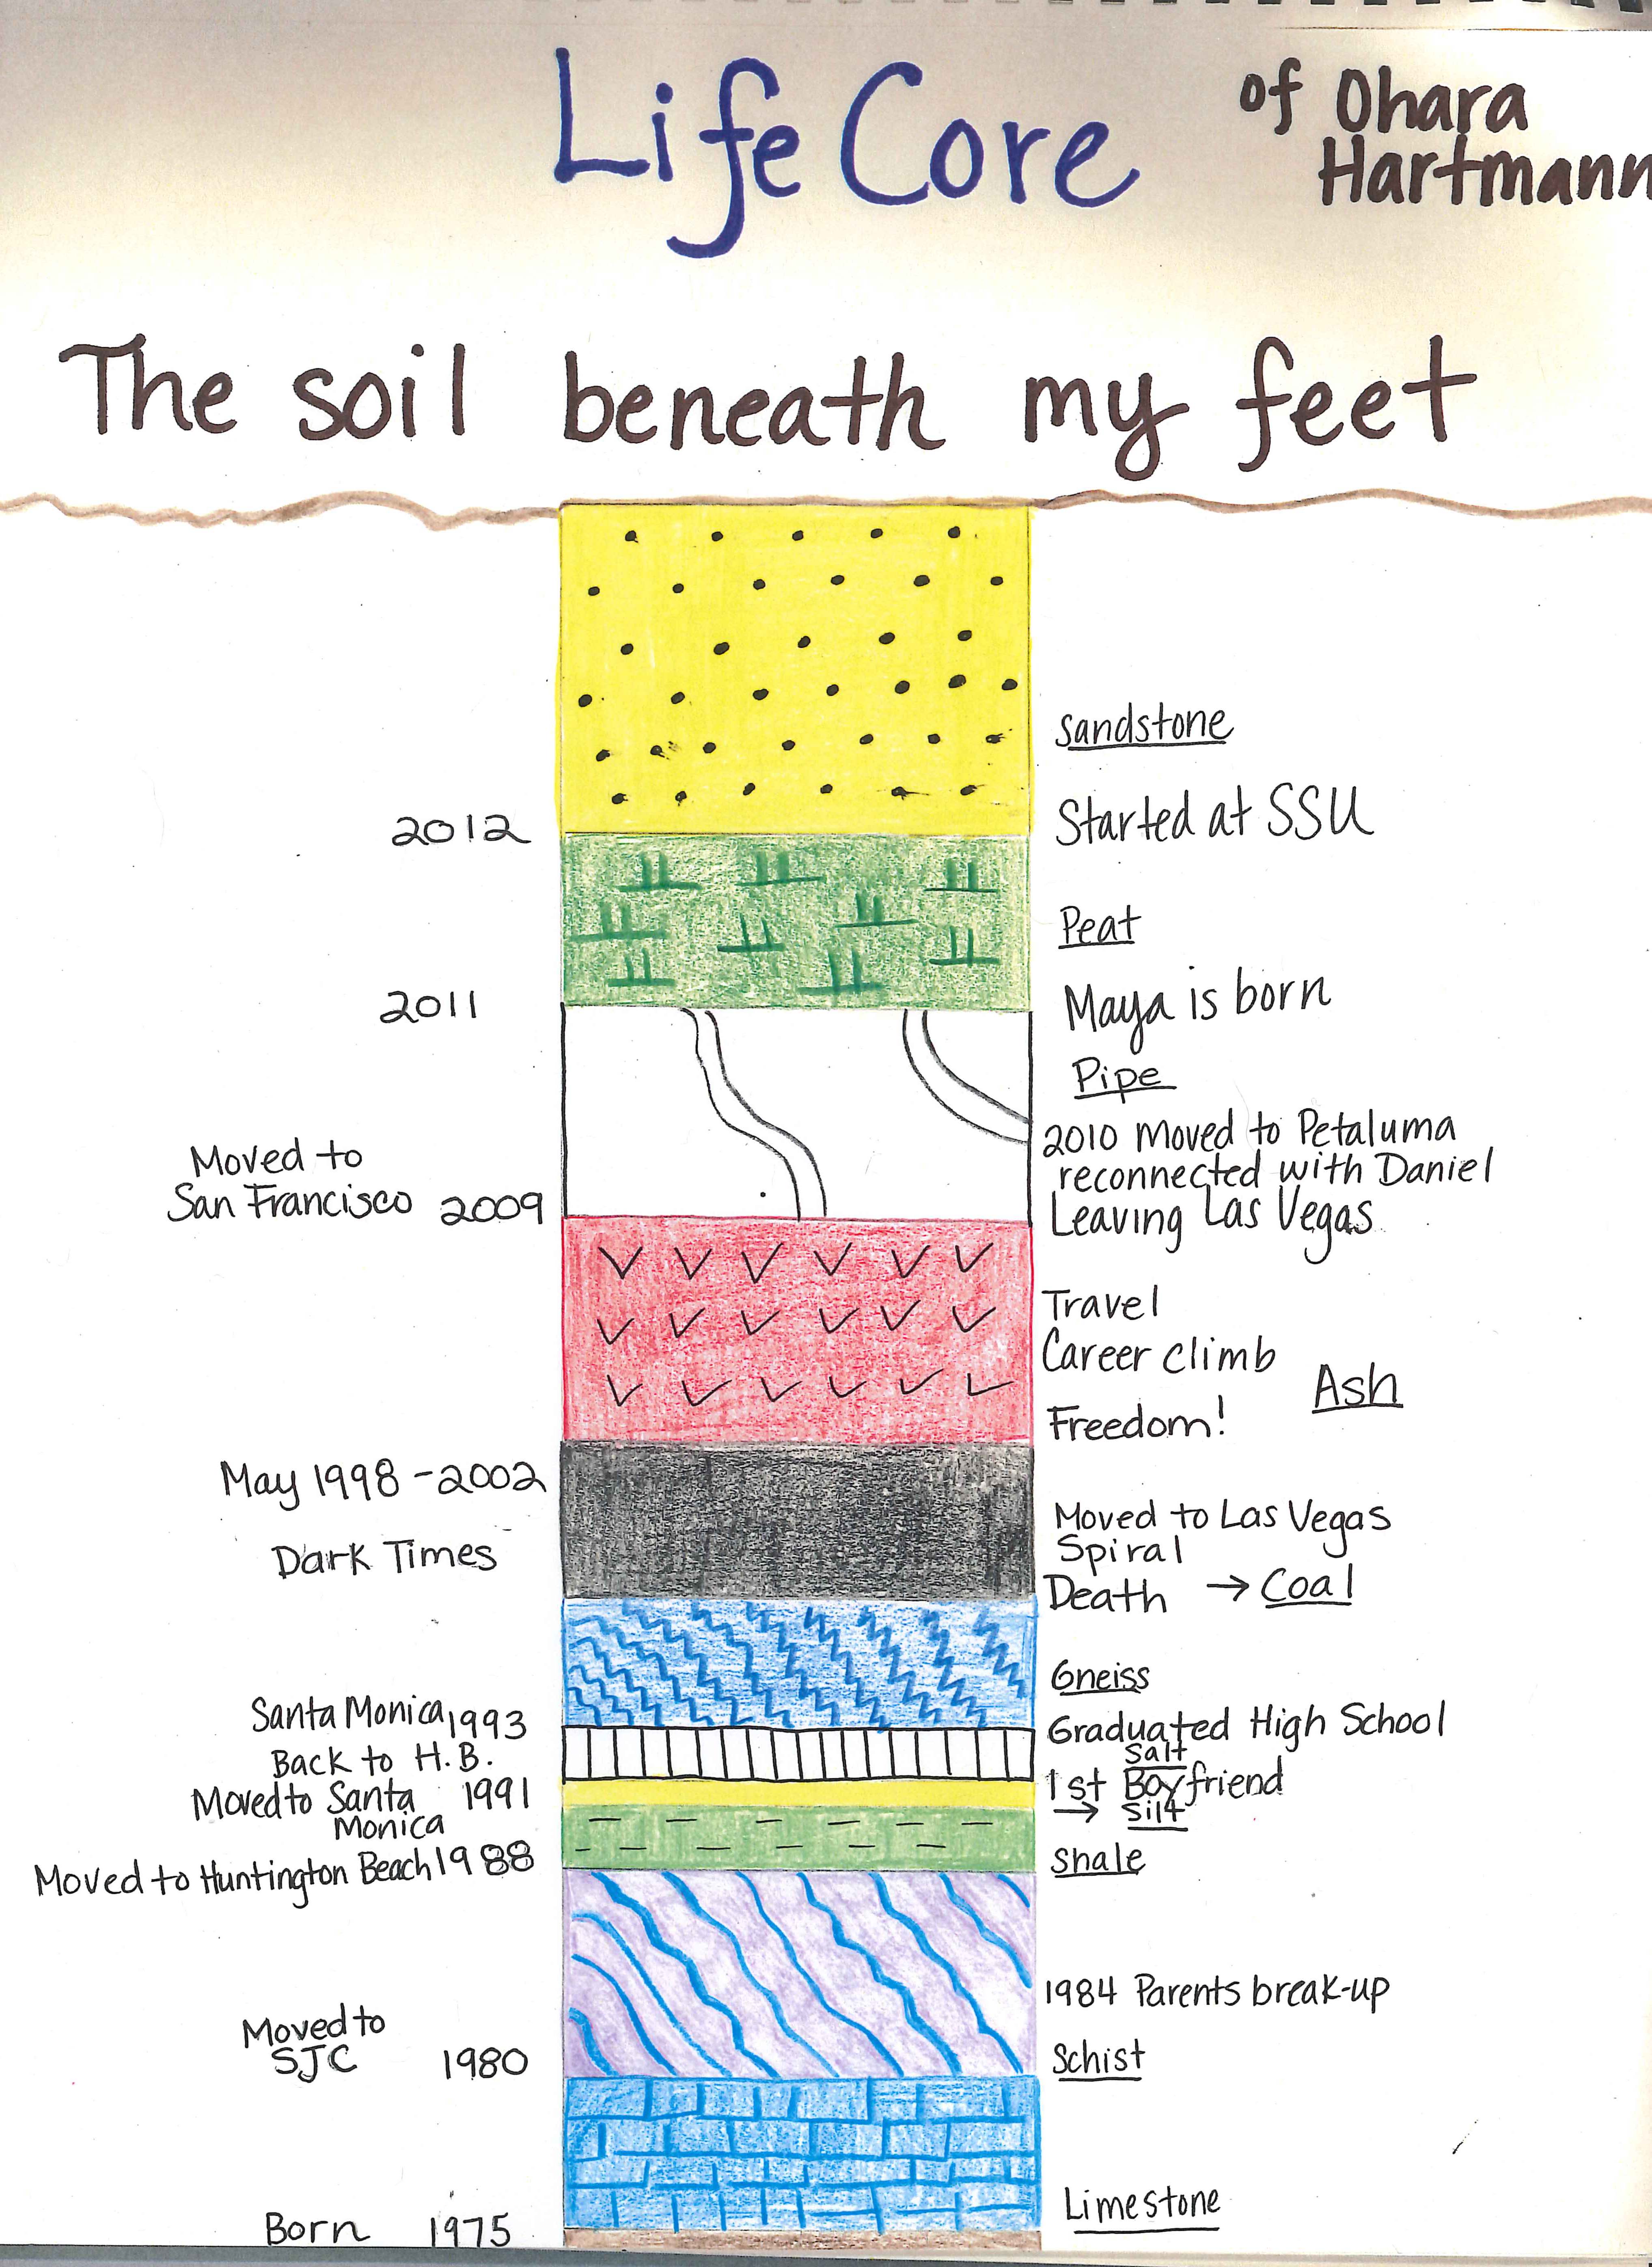 Life Core
of Ohara
Hartmann
The soil beneath my feet
Sandstone
2012
Started at SSU
Peat
2011
Maya is born
Pipe
2010 Moved to Petaluma
reconnected with Daniel
Leaving Las Vegas
Moved to
San Francisco 2009
Travel
Career climb
Freedom!
Ash
May 1998-2002
Dark Times
Moved to Las Vegas
Spiral
Death → Coal
Gneiss
Santa Monica 1993
Graduated High School
Back to H.B.
Salt
Moved to Santa 1991
Monica
1st Boyfriend
→ Silt
Moved to Huntington Beach 1988
Shale
1984 Parents break-up
Moved to
SJC 1980
Schist
Limestone
Born 1975